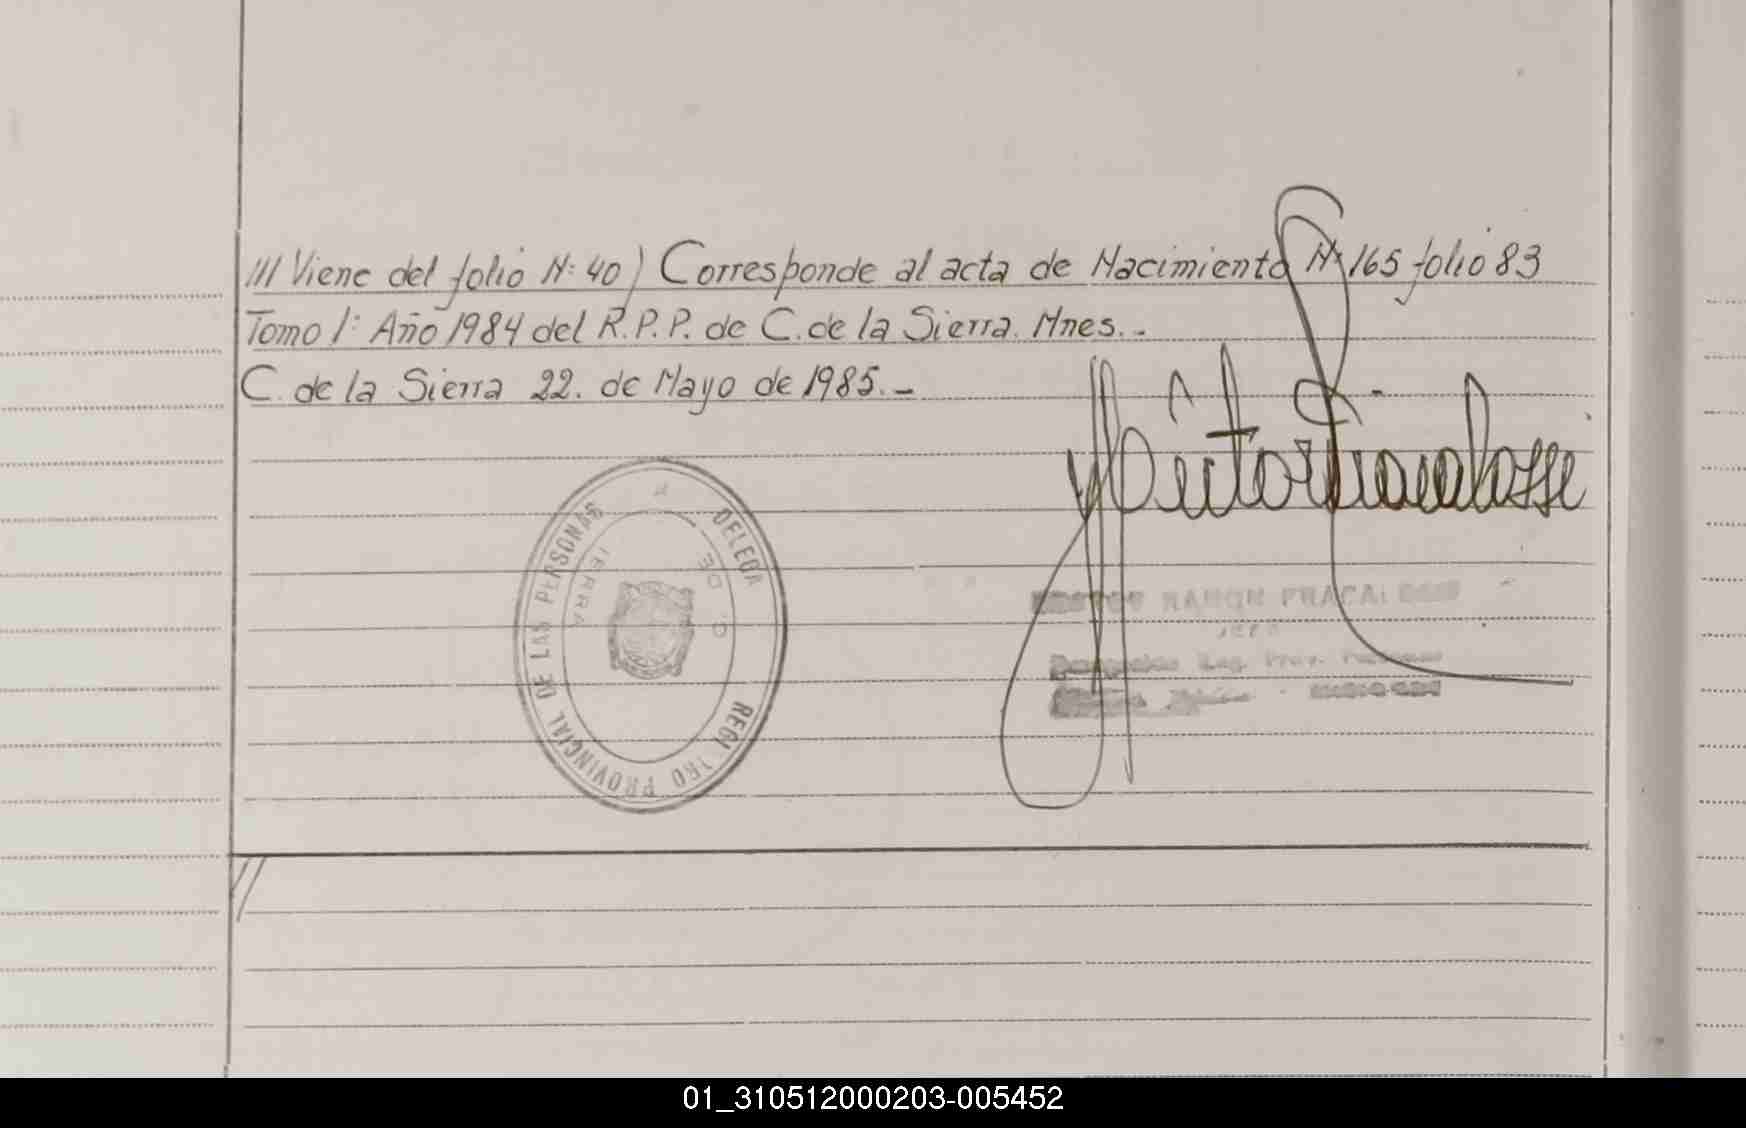 /// Viene del folio N: 40) Corresponde al acta de Nacimiento N: 165 folio 83
Tomo I: Año 1984 del R.P.P. de C. de la Sierra. Mnes. .-
C. de la Sierra 22. de Mayo de 1985.-
DELEGA
REGI TRO PROVINCIAL DE LAS PERSONAS
C. DE
IERRA
RAMON FRACALOSSI
JEFE
Reg. Prov.
01_310512000203-005452